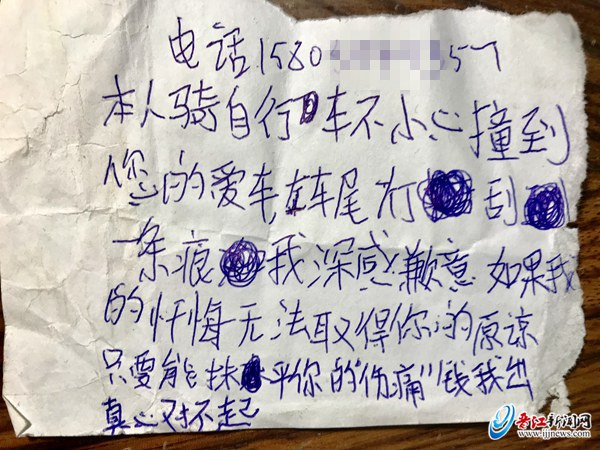 电话1580 357
本人骑自行车不小心撞到
您的爱车,左车尾灯刮
一条痕 我深感歉意 如果我
的忏悔无法取得你的原谅
只要能抹平你的"伤痛"钱我出
真心对不起
晋江新闻网
www.ijjnews.com